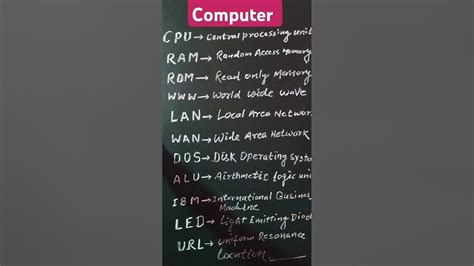 Computer
CPU → Central processing unit
RAM → Random Access Memory
ROM → Read only Memory
WWW → World wide wave
LAN → Local Area Network
WAN → Wide Area Network
DOS → Disk Operating Syst
ALU → Airthmetic logic uni
IBM → International Busines
Machine
LED → Light Emitting Diod
URL → Uniform Resonance
location